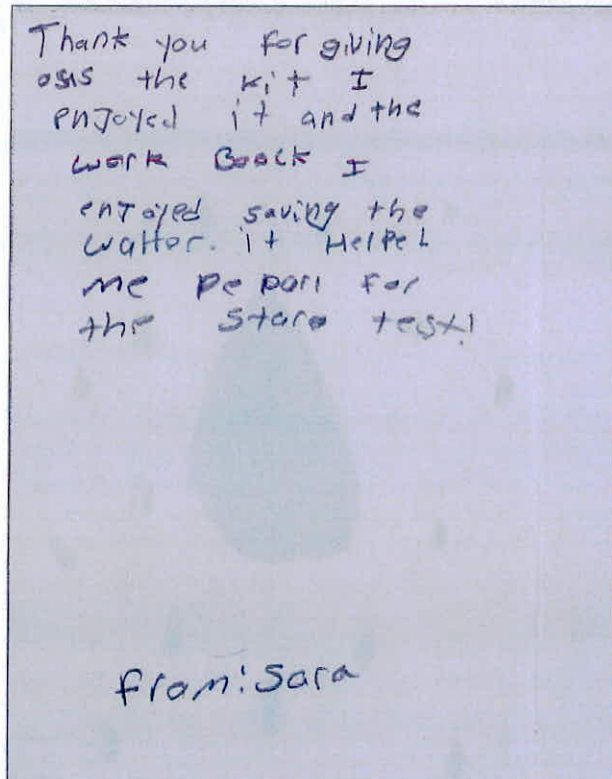 Thank you for giving
osis the kit I
enJoyed it and the
work Boock I
enJoyed saving the
watter. it HelPeL
me Pe pari for
the Stare test!
from: Sara